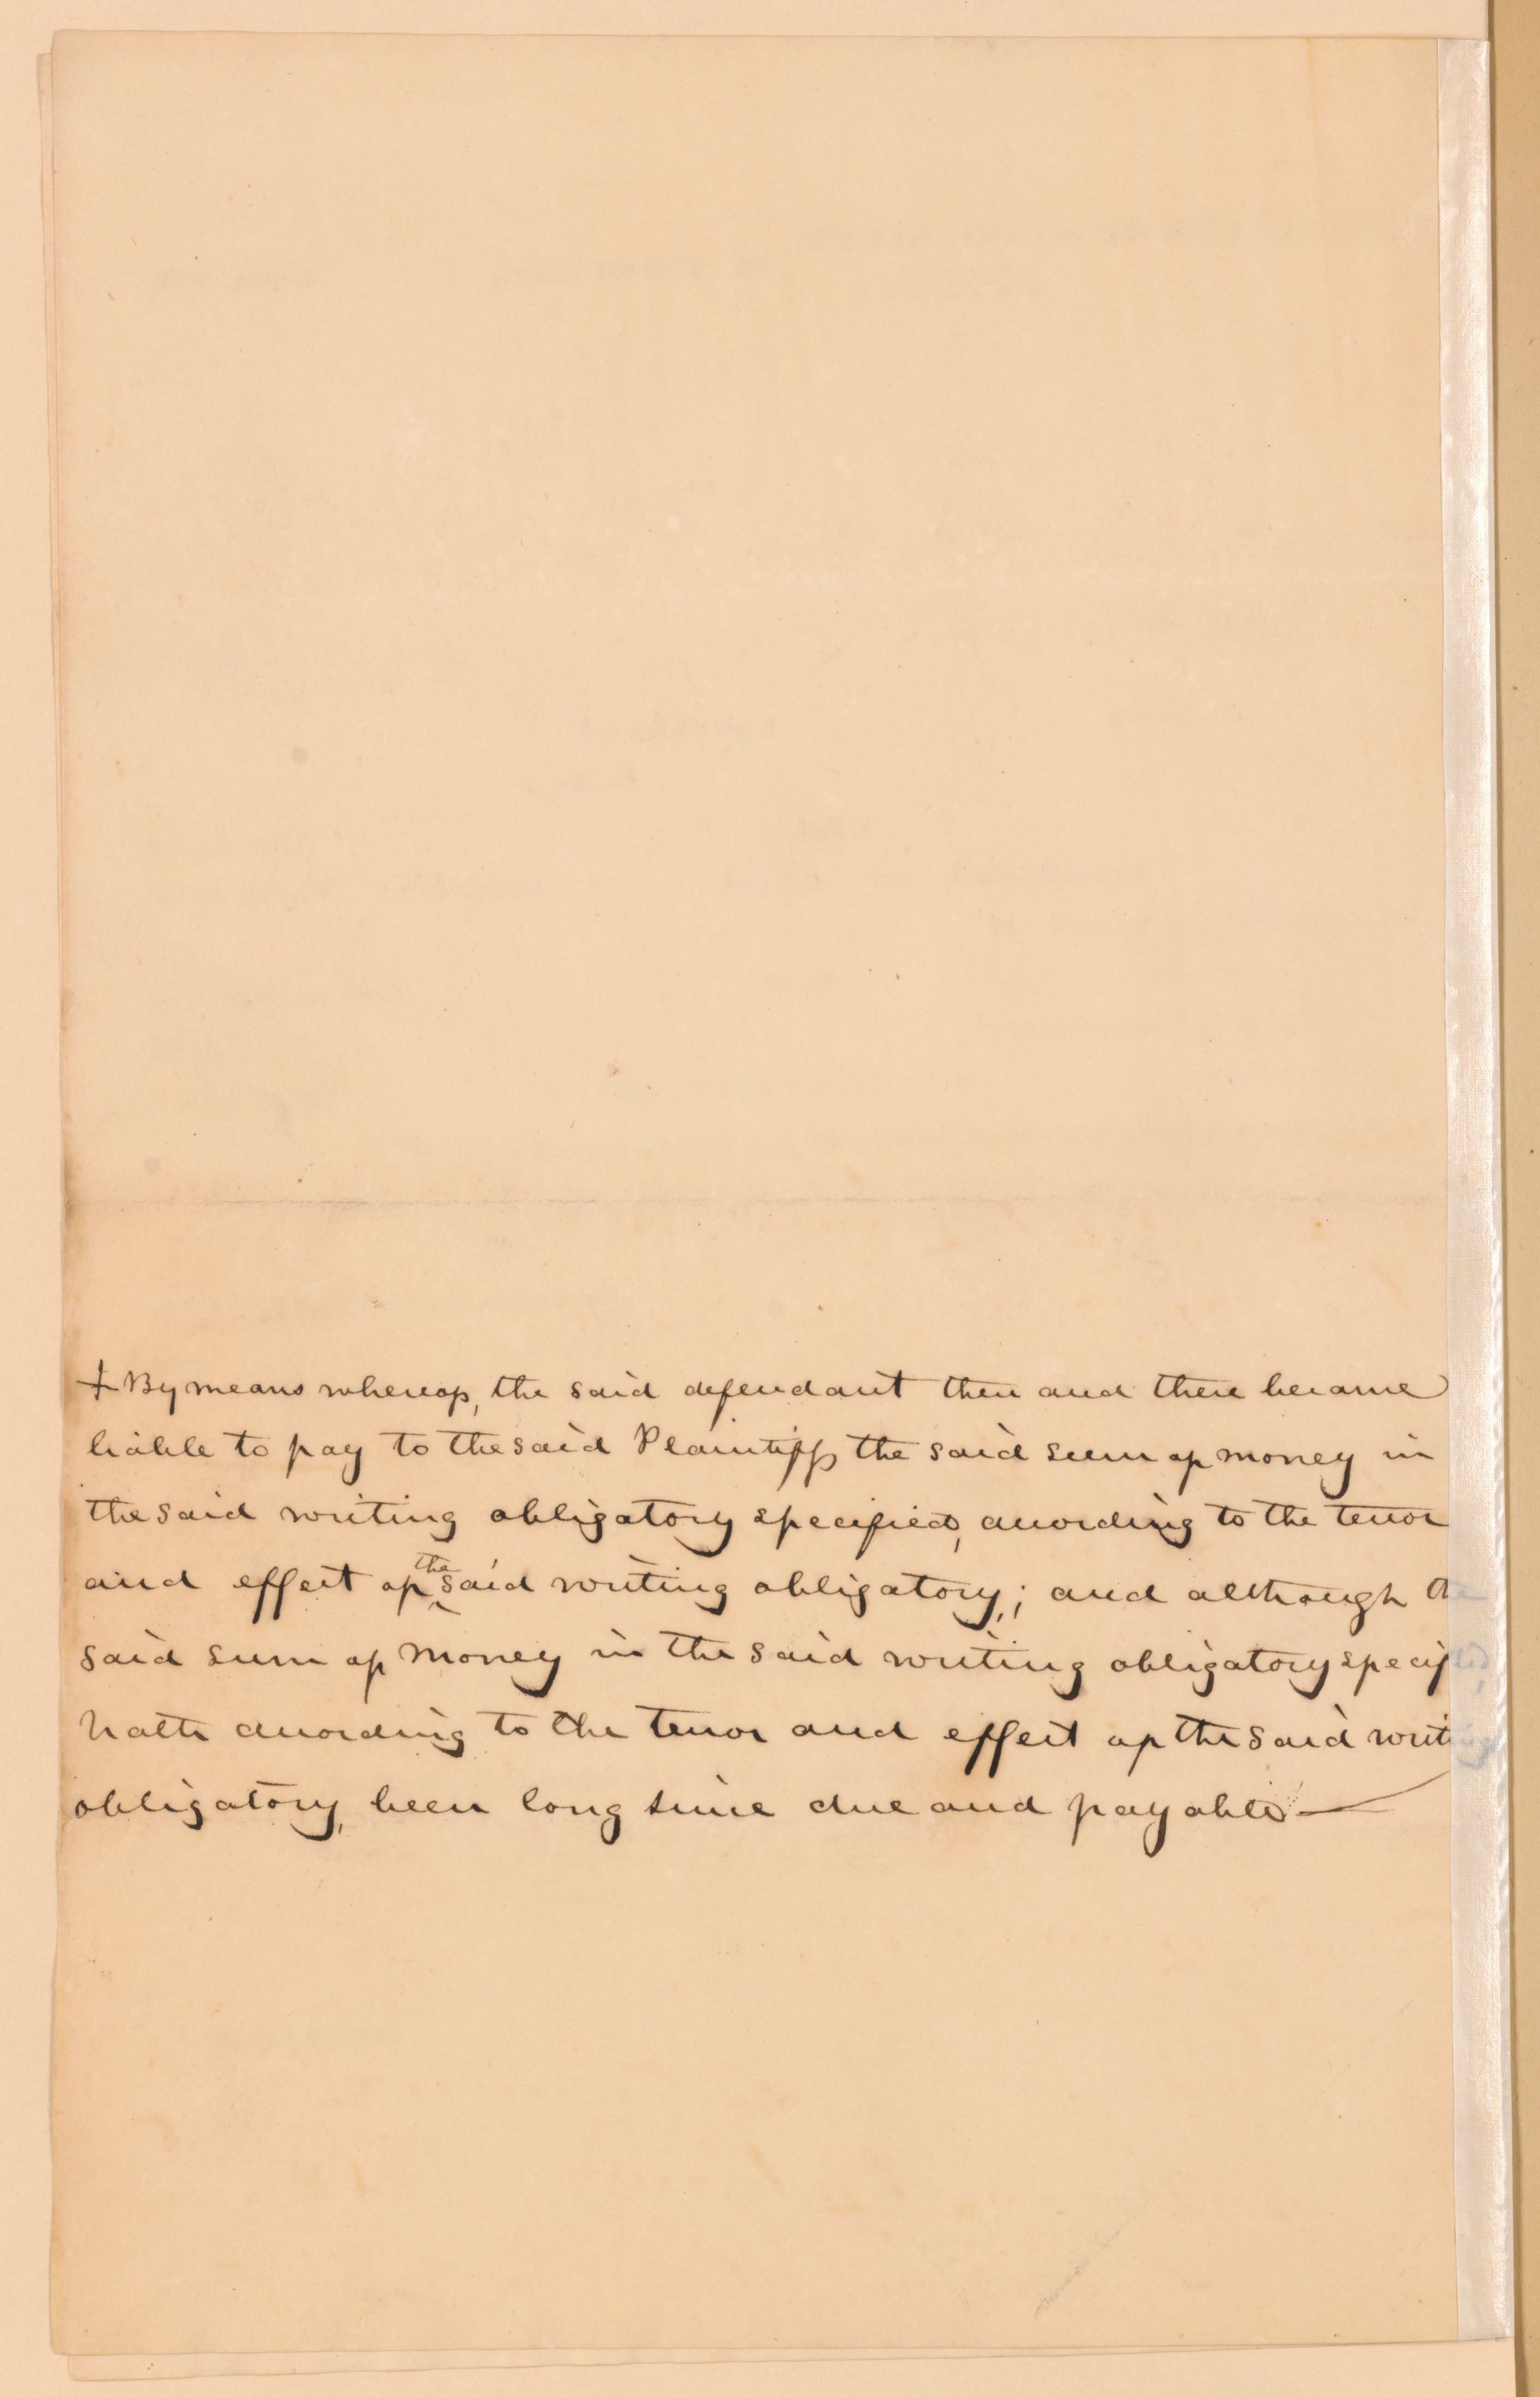 + By means whereof, the said defendant then and there became
liable to pay to the said Plaintiffs the said sum of money in
the said writing obligatory specified, according to the tenor
and effect of the said writing obligatory,; and although the
said sum of money in the said writing obligatory specif
hath according to the tenor and effect of the said writing
obligatory, been long since due and payable —